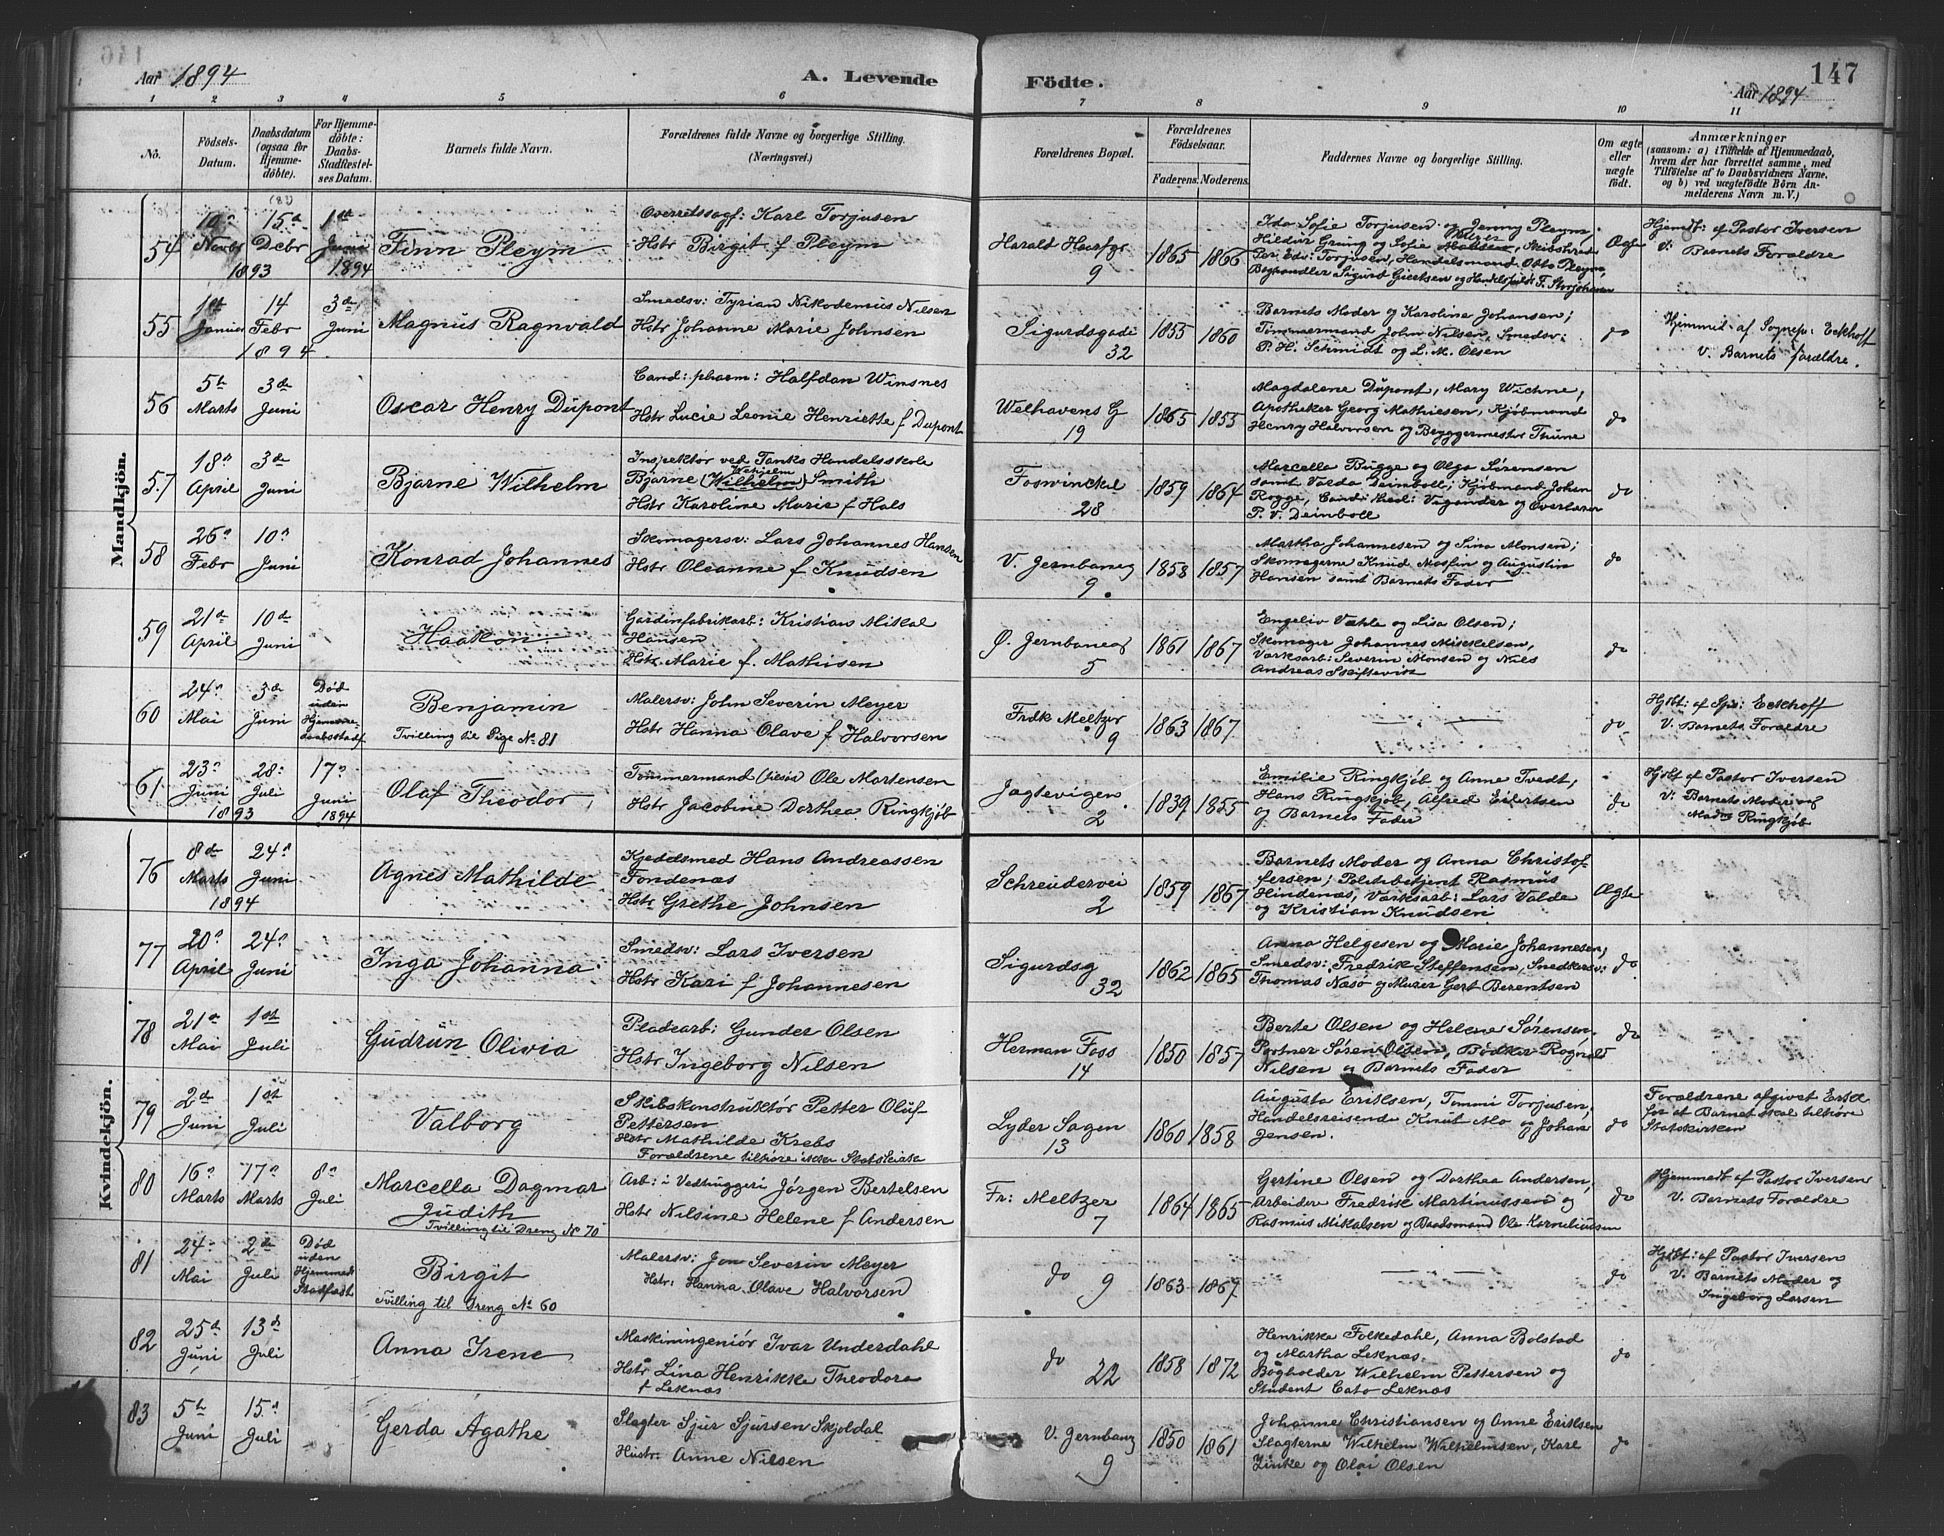 Aar 1894
A. Levende
Födte.
147
Aar 1894
1 2 3 4 5 6 7 8 9 10 11
No.
Födsels-Datum.
Daabsdatum (ogsaa for Hjemme-döbte).
For Hjemme-döbte: Daabs-Stadfæstel-ses Datum.
Barnets fulde Navn.
Forældrenes fulde Navne og borgerlige Stilling.
(Næringsvei.)
Forældrenes Bopæl.
Forældrenes Födselsaar.
Faderens. Moderens.
Faddernes Navne og borgerlige Stilling.
Om ægte eller uægte födt.
Anmærkninger
(saasom: a) i Tilfælde af Hjemmedaab, hvem der har forrettet samme, med Tilföielse af to Daabsvidners Navne, og b) ved uægtefödte Börn An-melderens Navn m. V.)
Mandkjön.
54 10n Novbr 15d Dcbr 1893 1st Juni 1894 Finn Pleym
Overretssagf: Karl Torjusen
Hstr Birgit f Pleym
Harald Haarfgr 9
1865 1866
Ida Sofie Torjusen og Jenny Pleym
Hildur Grung og Sofie
Per Edv: Torjusen, Handelsmand Otto Pleym,
Boghandler Sigurd Giertsen og Handelsfuldm F. Storjohann
Ægte
Hjemdt: af Pastor Iversen
V. Barnets Forældre
55 1st Januar 14 Febr 1894 3de Juni Magnus Ragnvald
Smedsv: Tyrian Nikodemus Nilsen
Hstr Johanne Marie Johnsen
Sigurdsgade 32
1855 1860
Barnets Moder og Karoline Johansen;
Tømmermand John Nilsen, Smedsv:
P. H. Schmidt og L. M. Olsen
do
Hjemmit: af Sognep: Eckhoff
v. Barnets forældre.
56 5te Marts 3de Juni Oscar Henry Dupont
Cand: pharm: Halfdan Winsnes
Hstr Lucie Leonie Henriette f Dupont
Welhavens G 19
1865 1855
Magdalene Dupont, Mary Wichne,
Apotheker Georg Mathiesen, Kjøbmand
Henry Halvorsen og Bryggermester Thune
do
57 18n April 3de Juni Bjarne Wilhelm
Inspektør ved Tanks Handelsskole
Bjarne (Wilhelm) Smith
Hstr Karoline Marie f Hals
Foswinckel 28
1859 1864
Marcella Bugge og Olga Sørensen
samt Valda Deinboll; Kjøbmand Johan
Rogge, Cand: theol: Vigander og Overlærer
P. V. Deinboll
do
58 26n Febr 10n Juni Konrad Johannes
Skomagersv: Lars Johannes Hansen
Hstr Oleanne f Knudsen
V. Jernbaneg 9.
1858 1857
Martha Johannesen og Sina Monsen;
Skomagerne Knud Mosfin og Augustin
Hansen samt Barnets Fader
do
59 21d April 10d Juni Haakon
Gardinfabrikarb: Kristian Mikal
Hansen
Hstr Marie f. Mathisen
Ø. Jernbaneg 5
1861 1867
Engeliv Vahle og Lisa Olsen;
Skomager Johannes Mickelsen,
Værksarb: Severin Monsen og Nils
Andreas Skiftesvik
do
60 24n Mai 3d Juni Død uden Hjemme-daabsstadf Benjamin
Tvilling til Pige No 81
Malersv: John Severin Meyer
Hstr Hanna Olave f Halvorsen
Frdk Meltzer 9
1863 1867
do
Hjbt: af Spr: Eckhoff
V. Barnets Forældre
61 23n Juni 28n Juli 1893 17n Juni 1894 Olaf Theodor
Tømmermand Ole Martensen
Hstr Jacobine Dorthea Ringkjøb
Jægtevigen 2
1839 1855
Emilie Ringkjøb og Anne Tvedt,
Hans Ringkjøb, Alfred Eilertsen
og Barnets Fader
do
Hjbt af Pastor Iversen
V. Barnets Moder og
Ringkjøb
Kvindekjön.
76 8de Marts 24n Juni 1894 Agnes Mathilde
Kjeddsmed Hans Andreassen
Fondenæs
Hstr Grethe Johnsen
Schreudervei 2
1859 1867
Barnets Moder og Anna Christof-
fersen; Politibetjent Rasmus
Hindenæs, Værksarb: Lars Valde
og Kristian Knudsen
Ægte
77 20n April 24n Juni Inga Johanna
Smedsv: Lars Iversen
Hstr Kari f Johannesen
Sigurdsg 32
1862 1865
Anna Helgesen og Marie Johannesen;
Smedsv: Fredrik Steffensen, Snedkersv:
Thomas Næsø og Murer Gert Berentsen
do
78 21n Mai 1st Juli Gudrun Olivia
Pladearb: Gunder Olsen
Hstr Ingeborg Nilsen
Herman Foss 14
1850 1857
Berte Olsen og Helene Sørensen,
Portner Søren Olsen, Bødker Rognald
Nilsen og Barnets Fader
do
79 2d Juni 1st Juli Valborg
Skibskonstruktør Petter Oluf
Pettersen
Hstr Mathilde Krebs
Forældrene tilhøre ikke Statskirken
Lyder Sagen 13
1860 1858
Augusta Eriksen, Tommi Torjusen,
Handelsreisende Knut Mo og Johan
Jensen.
do
Forældrene afgivet Erkl
for at Barnet skal tilhøre
Statskirken
80 16n Marts 17n Marts 8n Juli Marcella Dagmar
Judith
Tvilling til Dreng No 70
Arb: i Vedhuggeri Jørgen Bertelsen
Hstr Nilsine Helene f Andersen
Fr: Meltzer 7
1864 1865
Gertine Olsen og Dorthea Andersen;
Arbeider Fredrik Martinussen og
Rasmus Mikalsen og Baadsmand Ole Korneliussen
do
Hjemmedt af Pastor Iversen
V. Barnets Forældre
81 24n Mai 2de Juli Død uden Hjemmed Stadfæst Birgit
Tvilling til Dreng No 60
Malersv: Jon Severin Meyer
Hstr: Hanna Olave Halvorsen
do 9
1863 1867
do
Hjbt: af Pastor Iversen
V. Barnets Moder og
Ingeborg Larsen
82 25d Juni 13d Juli Anna Irene
Maskiningeniør Ivar Underdahl
Hstr Lina Henrikke Theodora
f Leknæs
do 22
1858 1872
Henrikke Folkedahl, Anna Bolstad
og Martha Leknæs.
Bogholder Wilhelm Pettersen og
Student Cato Leknæs
do
83 5te Juni 15n Juli Gerda Agathe
Slagter Sjur Sjursen Skjoldal
Hustr. Anne Nilsen
V. Jernbang 9
1850 1861
Johanne Christiansen og Anne Eriksen
Slagterne Wilhelm Wilhelmsen, Karl
Zinke og Olai Olsen
do